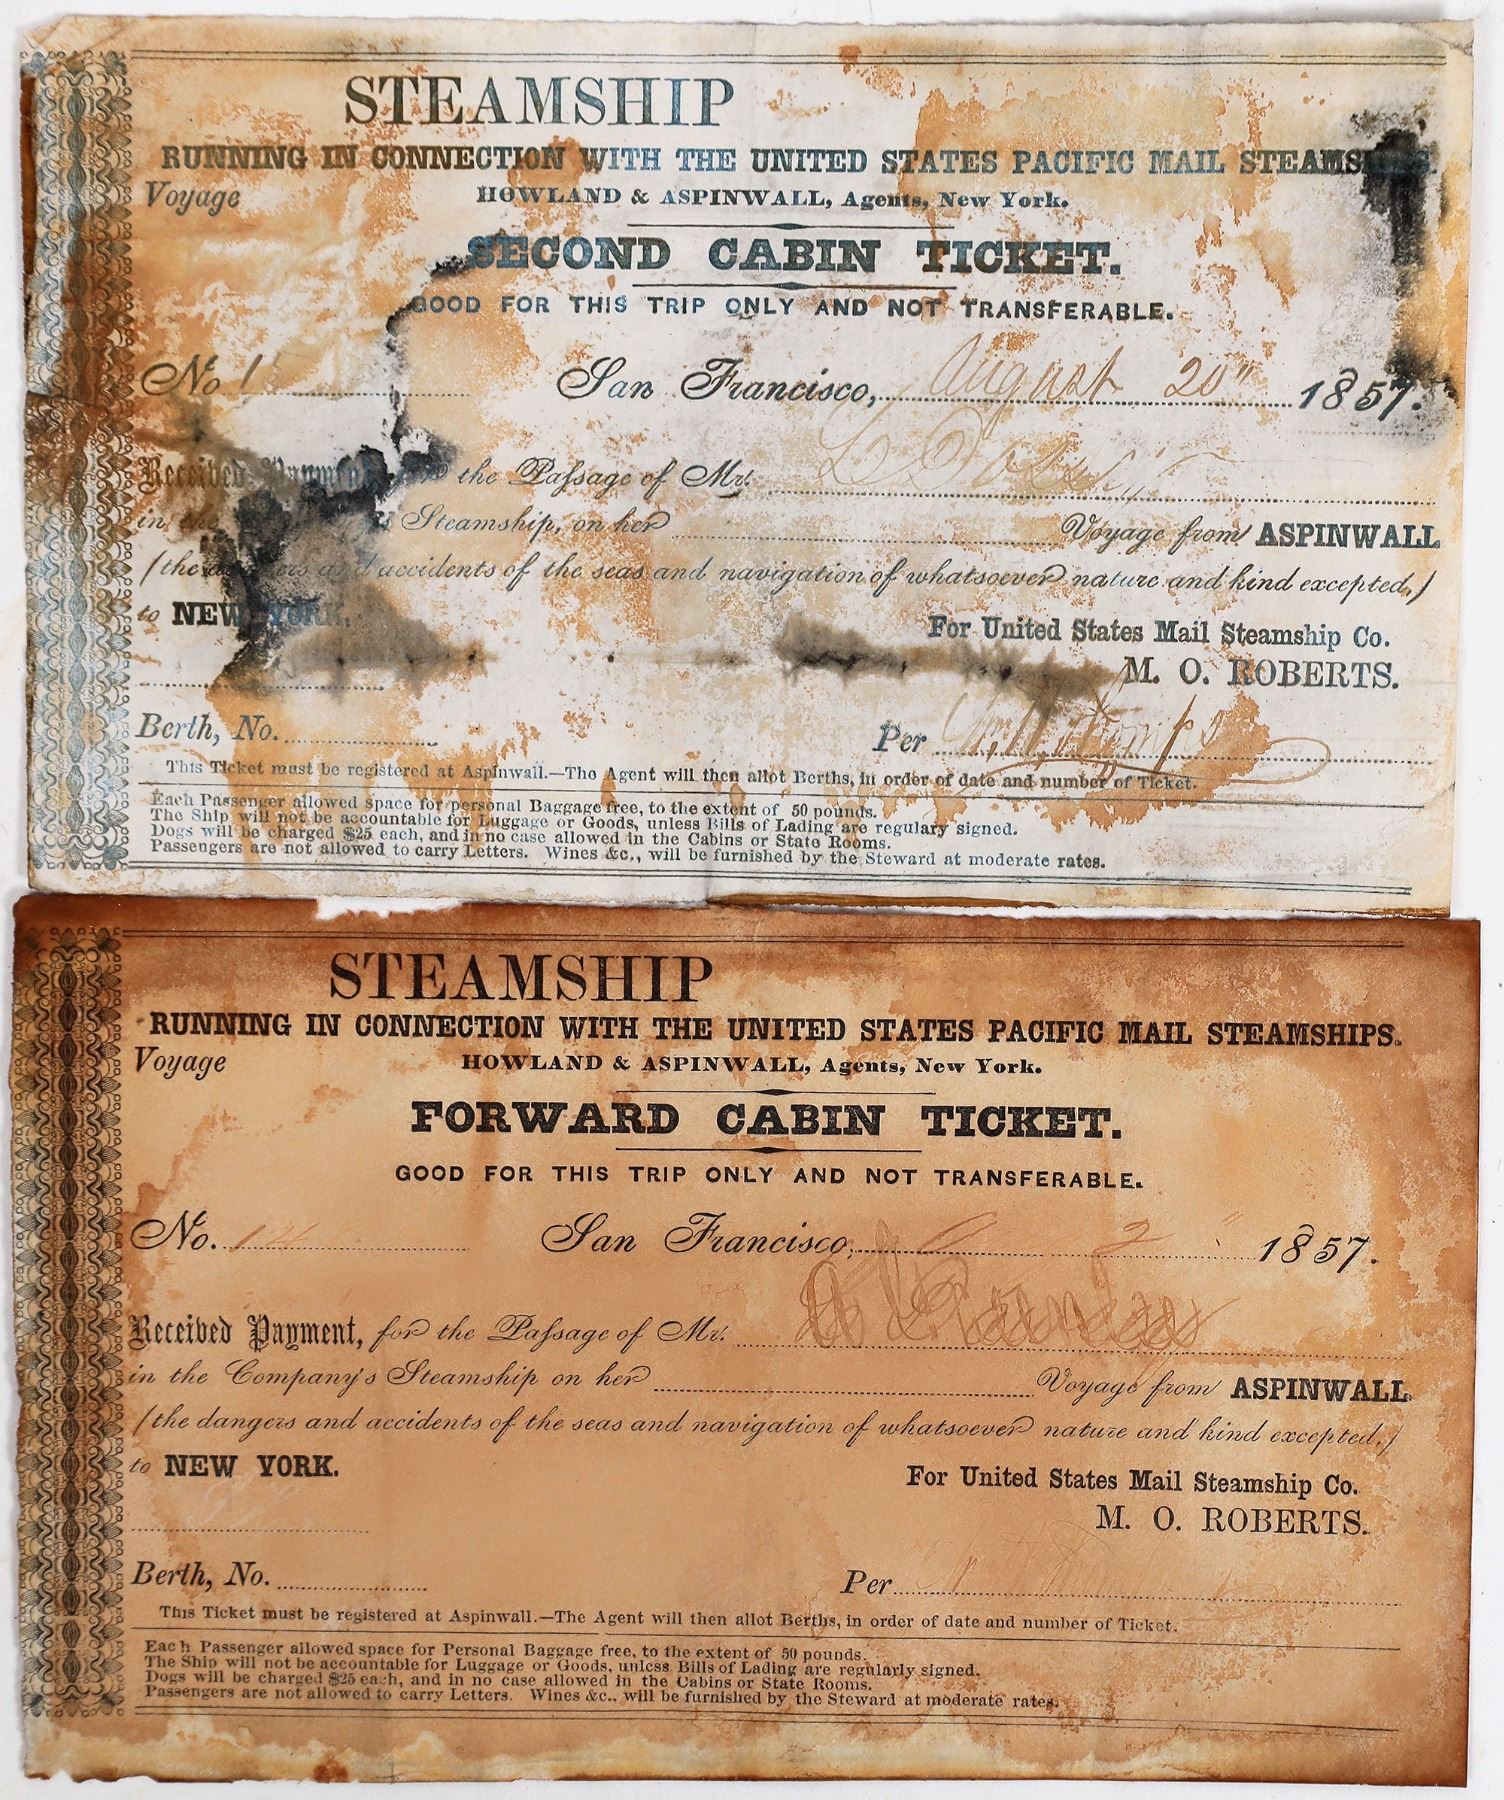 STEAMSHIP
RUNNING IN CONNECTION WITH THE UNITED STATES PACIFIC MAIL STEAMSHIPS.
Voyage HOWLAND & ASPINWALL, Agents, New York.
SECOND CABIN TICKET.
GOOD FOR THIS TRIP ONLY AND NOT TRANSFERABLE.
No 1 San Francisco, August 20" 1857.
Received Payment the Passage of Mr.
in the Steamship, on her Voyage from ASPINWALL
(the dangers and accidents of the seas and navigation of whatsoever nature and kind excepted,)
to NEW YORK.
For United States Mail Steamship Co.
M. O. ROBERTS.
Berth, No. Per
This Ticket must be registered at Aspinwall.—The Agent will then allot Berths, in order of date and number of Ticket.
Each Passenger allowed space for personal Baggage free, to the extent of 50 pounds.
The Ship will not be accountable for Luggage or Goods, unless Bills of Lading are regulary signed.
Dogs will be charged $25 each, and in no case allowed in the Cabins or State Rooms.
Passengers are not allowed to carry Letters. Wines &c., will be furnished by the Steward at moderate rates.
STEAMSHIP
RUNNING IN CONNECTION WITH THE UNITED STATES PACIFIC MAIL STEAMSHIPS.
Voyage HOWLAND & ASPINWALL, Agents, New York.
FORWARD CABIN TICKET.
GOOD FOR THIS TRIP ONLY AND NOT TRANSFERABLE.
No. 14 San Francisco, 2 " 1857.
Received Payment, for the Passage of Mr.
in the Company's Steamship on her Voyage from ASPINWALL
(the dangers and accidents of the seas and navigation of whatsoever nature and kind excepted,)
to NEW YORK.
For United States Mail Steamship Co.
M. O. ROBERTS.
Berth, No. Per
This Ticket must be registered at Aspinwall.—The Agent will then allot Berths, in order of date and number of Ticket.
Each Passenger allowed space for Personal Baggage free, to the extent of 50 pounds.
The Ship will not be accountable for Luggage or Goods, unless Bills of Lading are regularly signed.
Dogs will be charged $25 each, and in no case allowed in the Cabins or State Rooms.
Passengers are not allowed to carry Letters. Wines &c., will be furnished by the Steward at moderate rates.